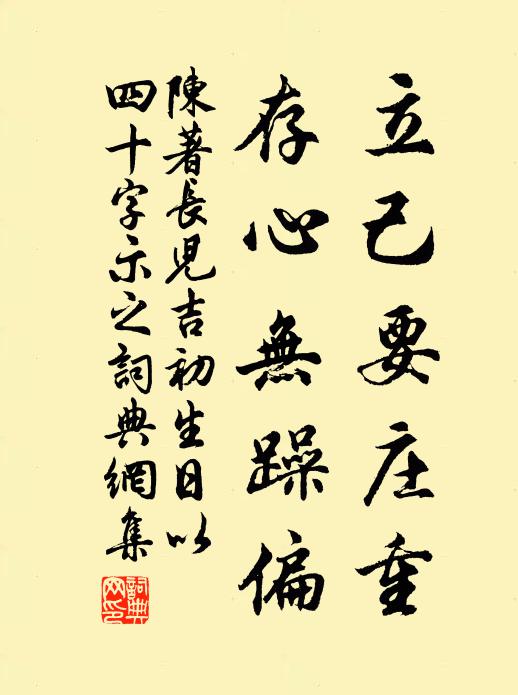 立己要庄重
存心無躁偏
陳著長児吉初生日以
四十字示之詞典網集
詞典
网印